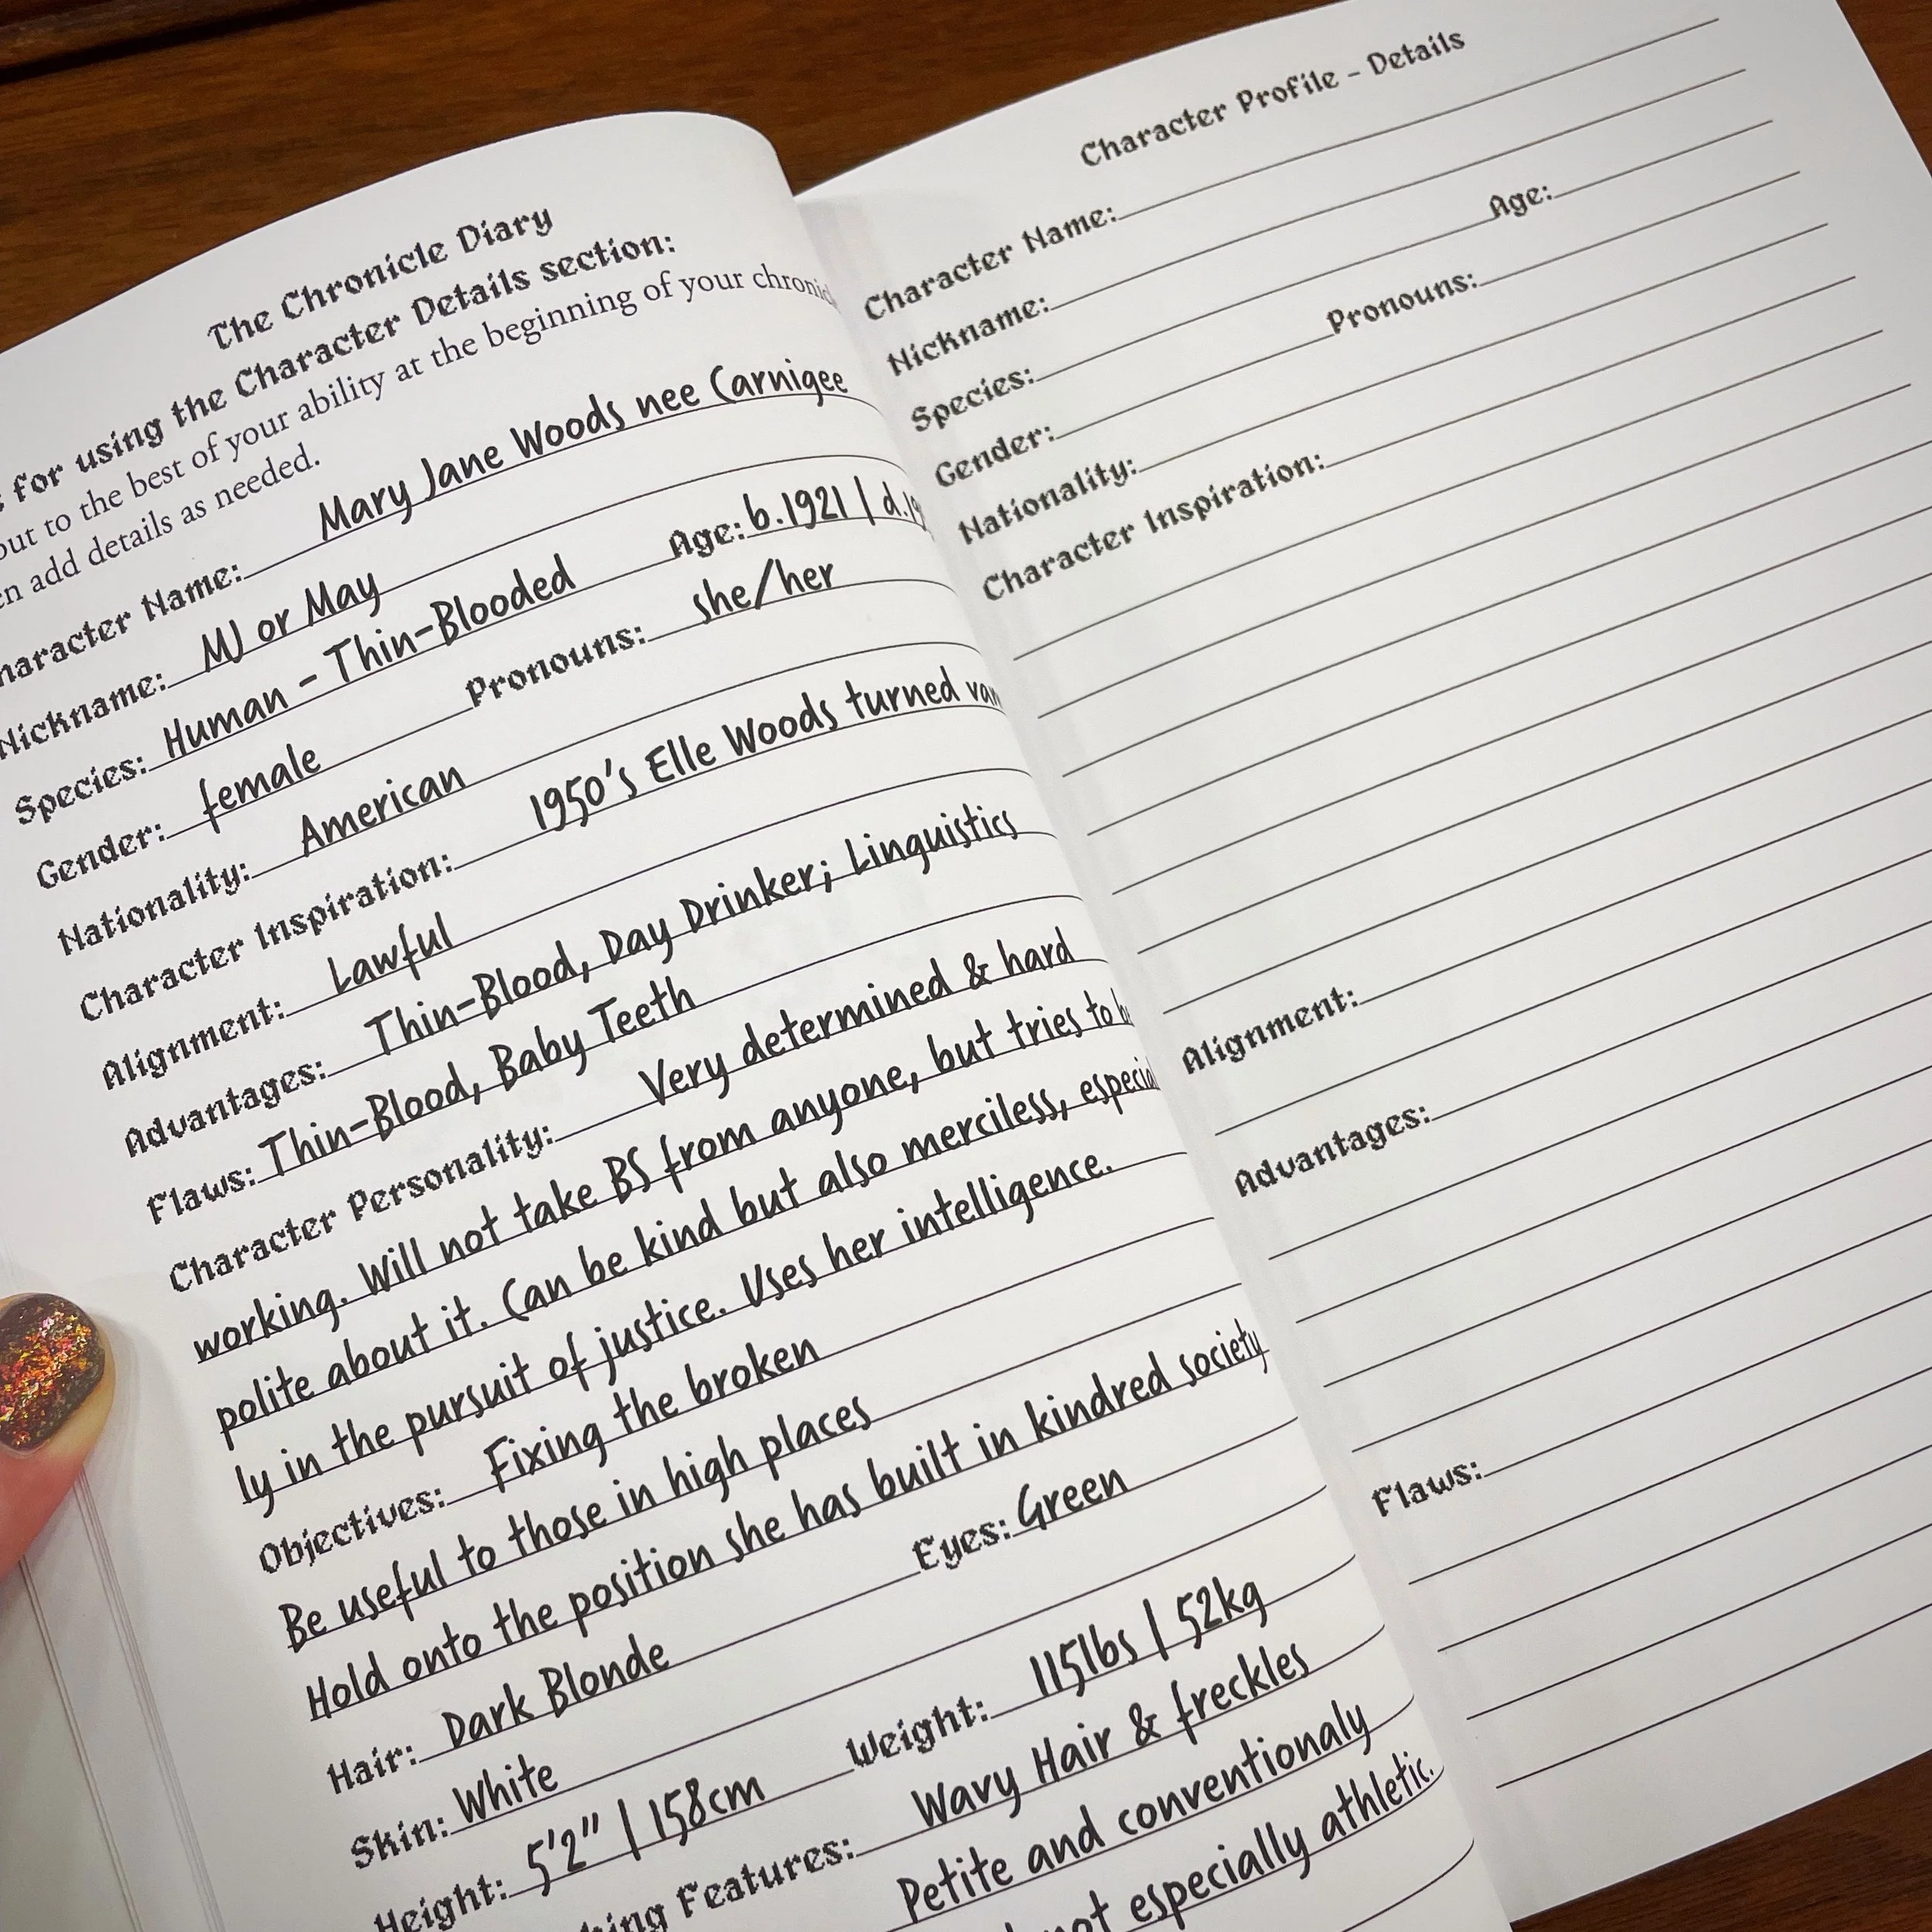 The Chronicle Diary
for using the Character Details section:
out to the best of your ability at the beginning of your
add details as needed.
Character Name: Mary Jane Woods nee Carnigee
Nickname: MJ or May
Species: Human - Thin-Blooded Age: b.1921 | d.
Gender: female Pronouns: she/her
Nationality: American
Character Inspiration: 1950's Elle Woods turned
Alignment: Lawful
Advantages: Thin-Blood, Day Drinker; Linguistics
Flaws: Thin-Blood, Baby Teeth
Character Personality: Very determined & hard
working. Will not take BS from anyone, but tries to
polite about it. Can be kind but also merciless, especial
ly in the pursuit of justice. Uses her intelligence.
Objectives: Fixing the broken
Be useful to those in high places
Hold onto the position she has built in kindred society
Hair: Dark Blonde Eyes: Green
Skin: White
Height: 5'2" | 158cm Weight: 115lbs | 52kg
Features: Wavy Hair & freckles
Petite and conventionaly
not especially athletic.
Character Profile - Details
Character Name:
Nickname:
Species: Age:
Gender: Pronouns:
Nationality:
Character Inspiration:
Alignment:
Advantages:
Flaws: